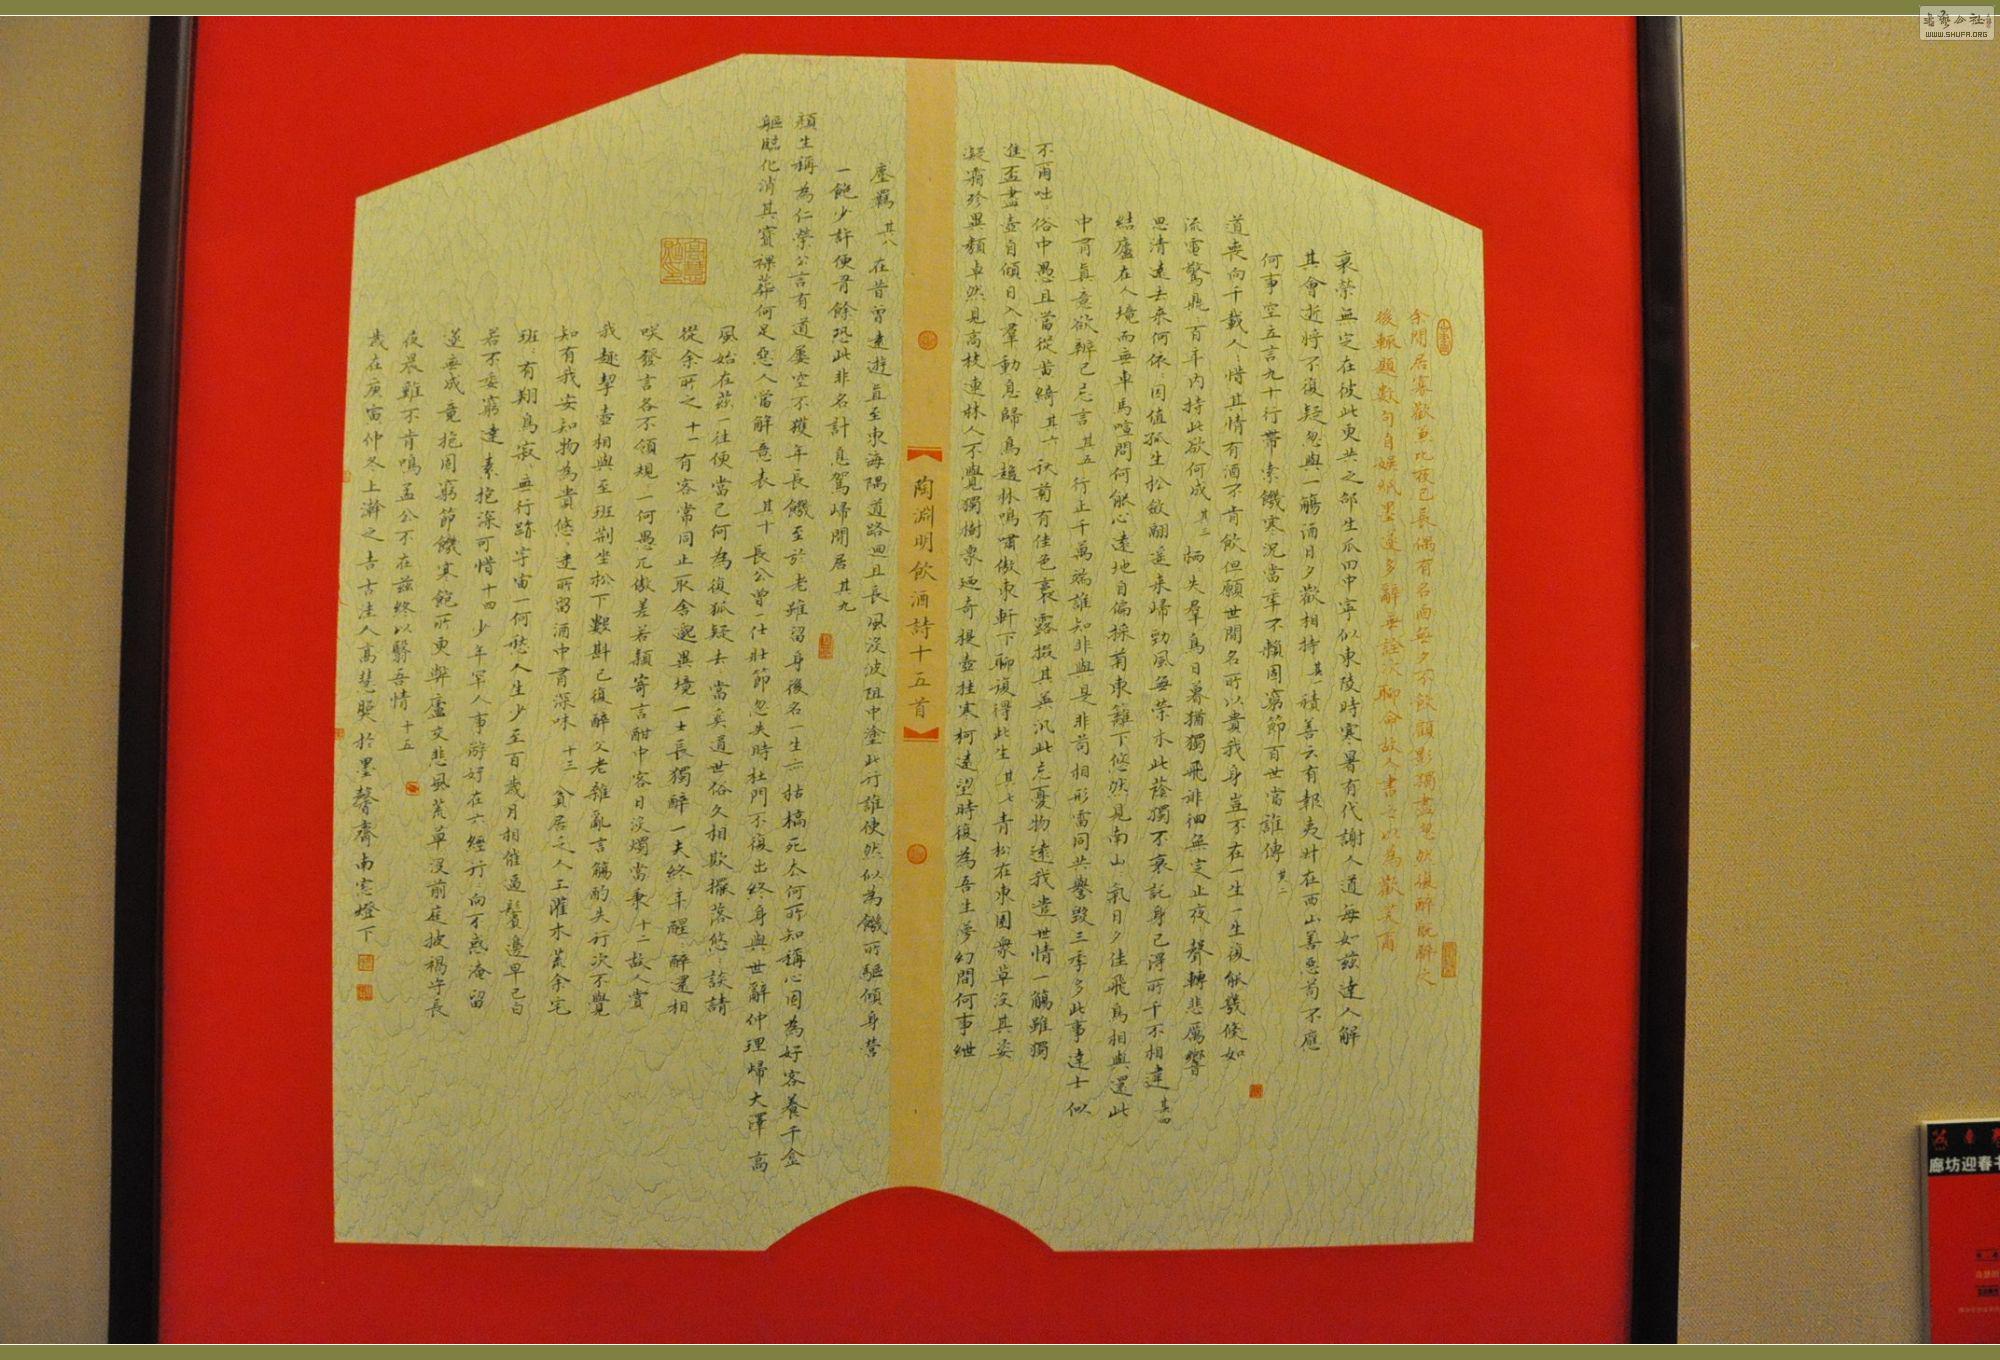 余閒居寡歡兼比夜已長偶有名酒無夕不飲顧影獨盡忽然復醉既醉之
後輒題數句自娛紙墨遂多辭無詮次聊命故人書之以為歡笑爾
衰榮無定在彼此更共之邵生瓜田中寧似東陵時寒暑有代謝人道每如茲達人解
其會逝將不復疑忽與一觴酒日夕歡相持 其一 積善云有報夷叔在西山善惡苟不應
何事空立言九十行帶索饑寒況當年不賴固窮節百世當誰傳 其二
道喪向千載人〻惜其情有酒不肯飲但願世間名所以貴我身豈不在一生一生復能幾倏如
流電驚鼎〻百年內持此欲何成 其三 栖〻失群鳥日暮猶獨飛徘徊無定止夜〻聲轉悲厲響
思清遠去來何依〻因值孤生松斂翮遙來歸勁風無榮木此蔭獨不衰託身已得所千不相違 其四
結廬在人境而無車馬喧問何能心遠地自偏採菊東籬下悠然見南山〻氣日夕佳飛鳥相與還此
中有真意欲辨已忘言 其五 行止千萬端誰知非與是〻非苟相形雷同共譽毀三季多此事達士似
不爾咄〻俗中愚且當從黃綺 其六 秋菊有佳色裛露掇其英汎此忘憂物遠我遺世情一觴雖獨
進盃盡壺自傾日入群動息歸鳥趨林鳴嘯傲東軒下聊復得此生 其七 青松在東園眾草沒其姿
凝霜殄異類卓然見高枝連林人不覺獨樹衆迺奇提壺挂寒柯遠望時復為吾生夢幻間何事紲
【陶淵明飲酒詩十五首】
塵羈 其八 在昔曾遠遊直至東海隅道路迴且長風波阻中塗此行誰使然似為饑所驅傾身營
一飽少許便有餘恐此非名計息駕歸閒居 其九
顏生稱為仁榮公言有道屢空不獲年長饑至於老雖留身後名一生亦枯槁死去何所知稱心固為好客養千金
軀臨化消其寶裸葬何足惡人當解意表 其十 長公曾一仕壯節忽失時杜門不復出終身與世辭仲理歸大澤高
風始在茲一往便當已何為復狐疑去〻當奚道世俗久相欺擺落悠〻談請
從余所之 十一 有客常同止取舍邈異境一士長獨醉一夫終年醒〻醉還相
咲發言各不領規〻一何愚兀傲差若穎寄言酣中客日沒燭當秉 十二 故人賞
我趣挈壺相與至班荊坐松下數斟已復醉父老雜亂言觴酌失行次不覺
知有我安知物為貴悠〻迷所留酒中有深味 十三 貧居乏人工灌木荒余宅
班〻有翔鳥寂〻無行跡宇宙一何悠人生少至百歲月相催逼鬢邊早已白
若不委窮達素抱深可惜 十四 少年罕人事游好在六經行〻向不惑淹留
遂無成竟抱固窮節饑寒飽所更弊廬交悲風荒草沒前庭披褐守長
夜晨雞不肯鳴孟公不在茲終以翳吾情 十五
歲在庚寅仲冬上澣之吉古法人高慧〻於墨馨齋南窓燈下
书艺公社
WWW.SHUFA.ORG
廊坊迎春书